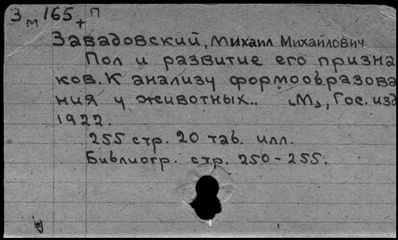 З м 165 + П
Завадовский, Михаил Михайлович
Пол и развитие его призна
ков. К анализу формообразова
ния у животных.. „М„, Гос. изд
1922.
255 стр. 20 таб. илл.
Библиогр. стр. 250-255.